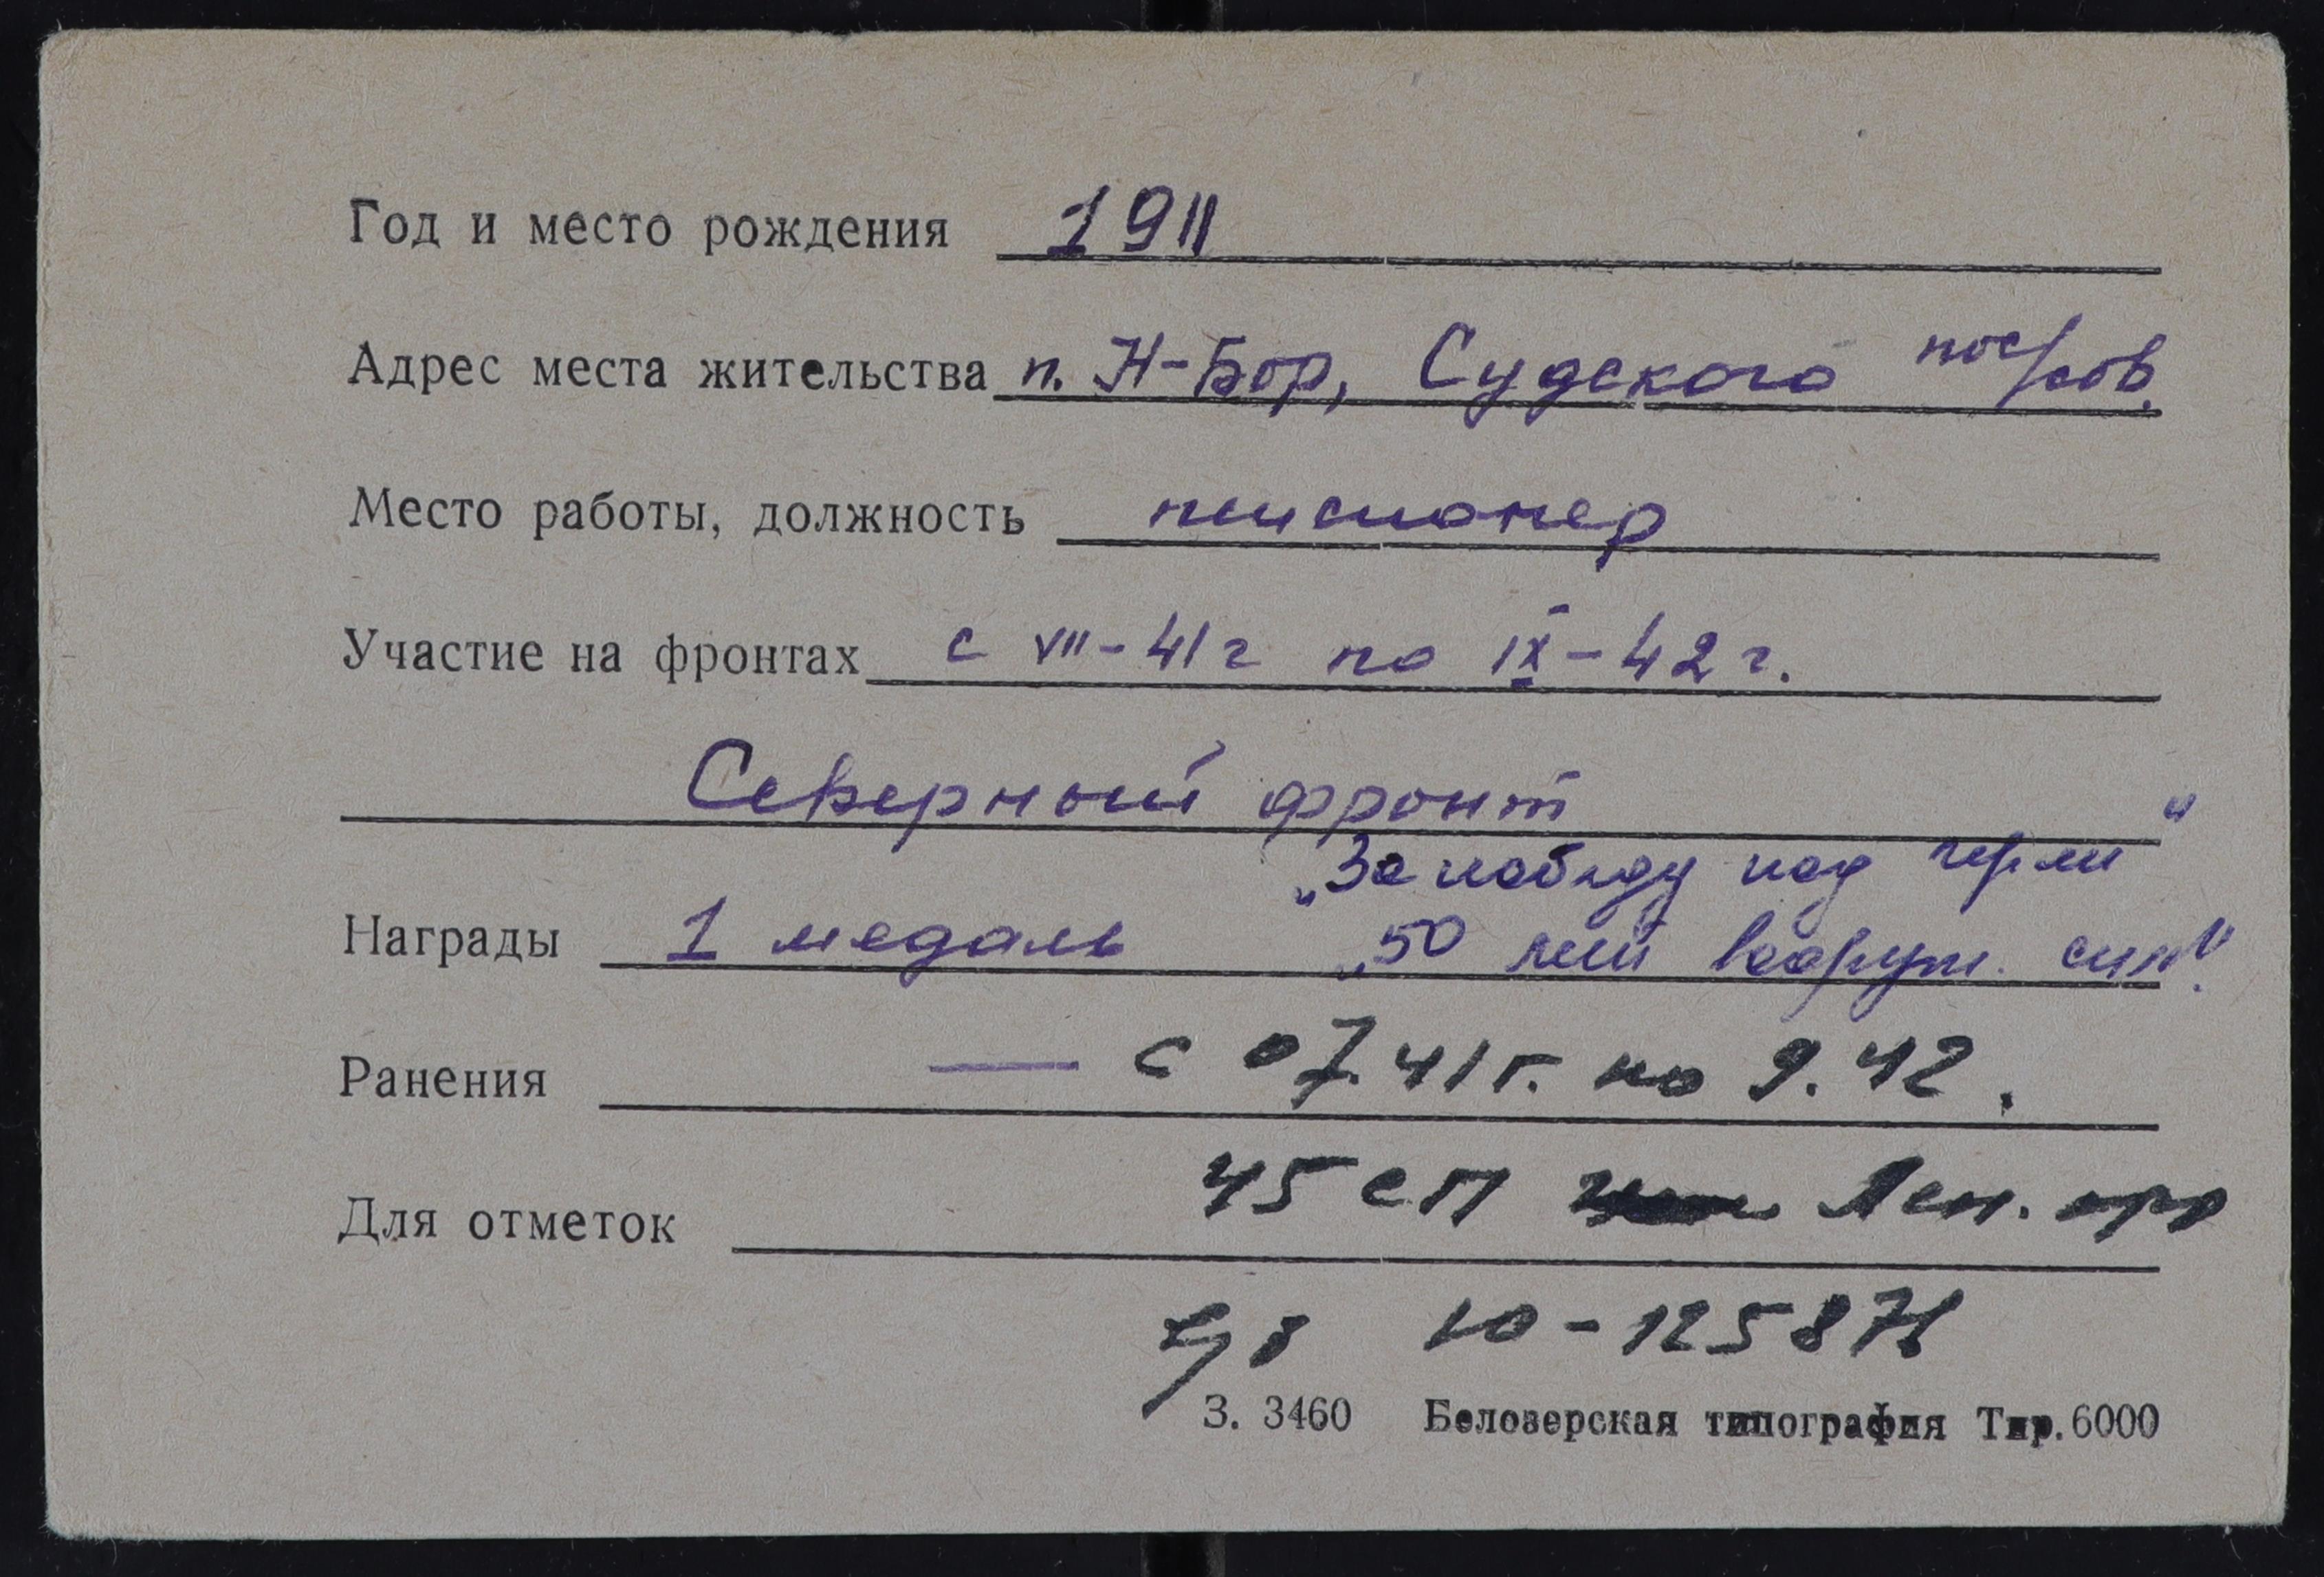 Год и место рождения 1911
Адрес места жительства п. Н-Бор, Судского пос/сов.
Место работы, должность пенсионер
Участие на фронтах с VII-41г по IX-42г.
Северный фронт
„За победу над герм“
Награды 1 медаль „50 лет вооруж. сил“
Ранения — с 07.41г. по 9.42.
Для отметок 45 сп Лен. фр
Ю-125871
З. 3460 Белозерская типография Тир. 6000